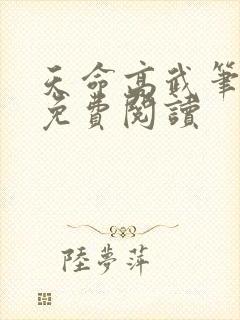 天命高武筆
免費閱讀
陸夢萍